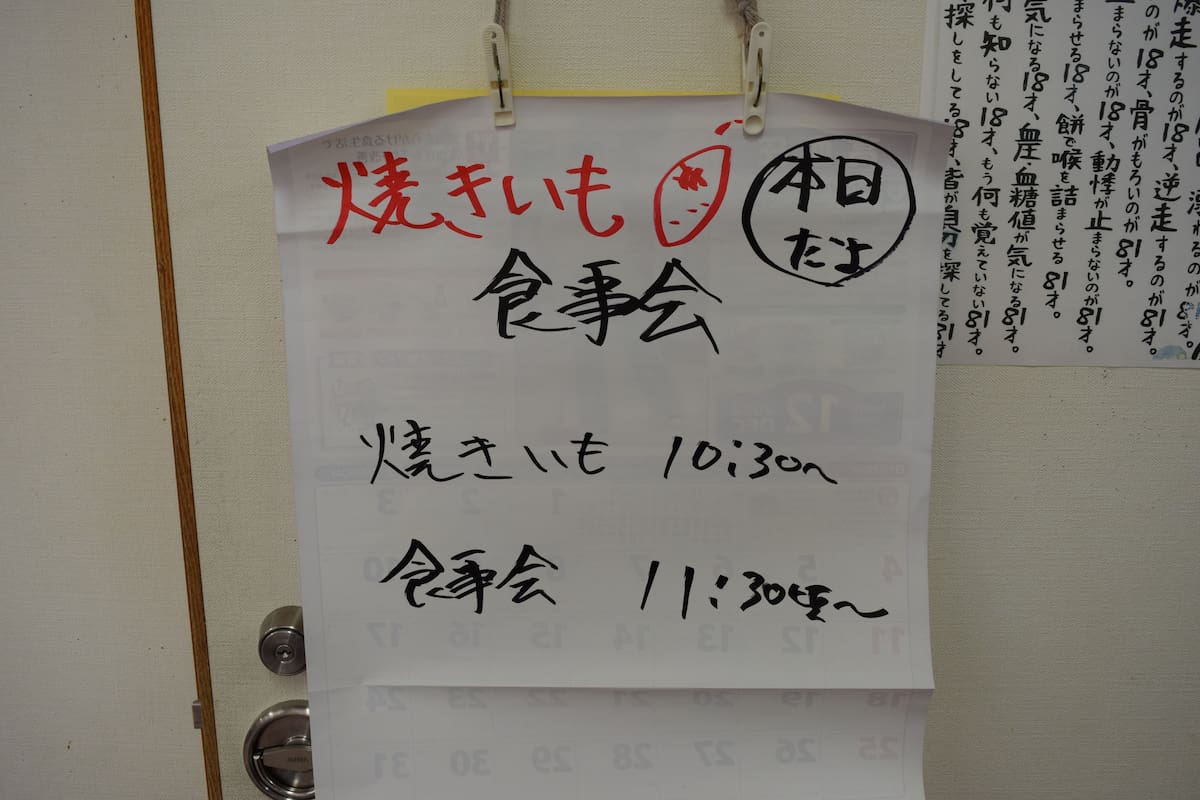 焼きいも
本日
だよ
食事会
焼きいも 10:30〜
食事会 11:30頃〜
12 DEC
1 2 3
4 5 6 7 10
11 12 13 14 15 16 17
18 19 20 21 22 23 24
25 26 27 28 29 30 31
爆走するのが18才、逆走するのが81才。
のが18才、骨がもろいのが81才。
まらないのが18才、動悸が止まらないのが81才。
まらせる18才、餅で喉を詰まらせる81才。
気になる18才、血圧・血糖値が気になる81才。
何も知らない18才、もう何も覚えていない81才。
探しをしてる18才、皆が自分を探してる81才